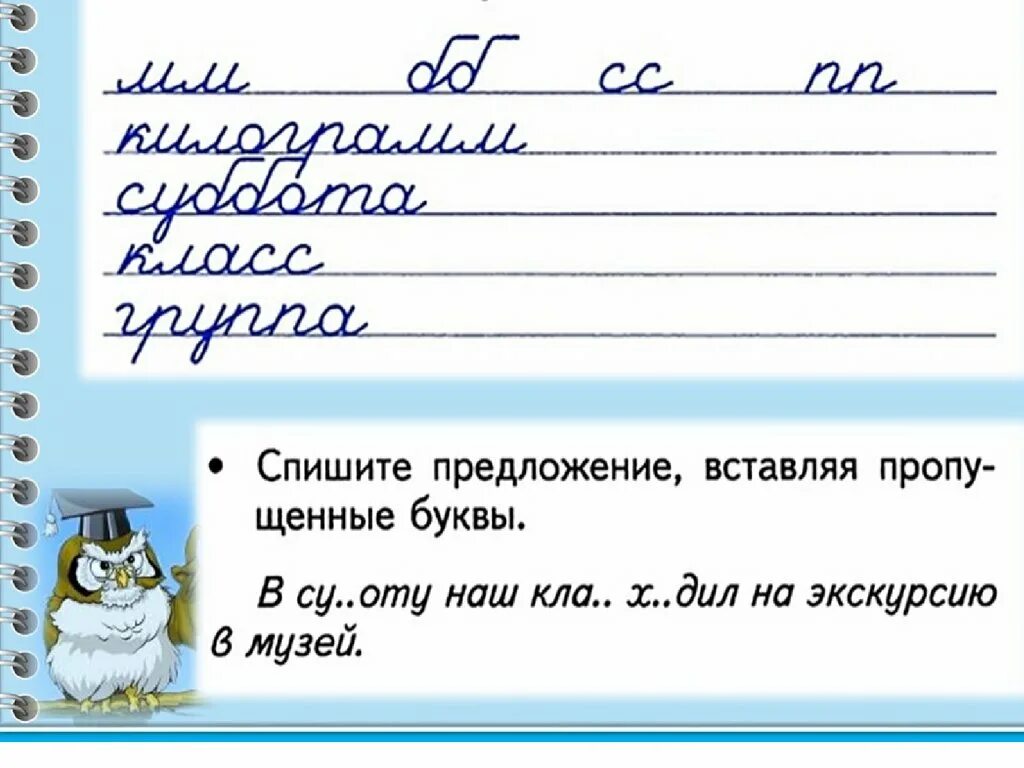 мм бб сс пп
килограмм
суббота
класс
группа
• Спишите предложение, вставляя пропу-
щенные буквы.
В су..оту наш кла.. х..дил на экскурсию
в музей.